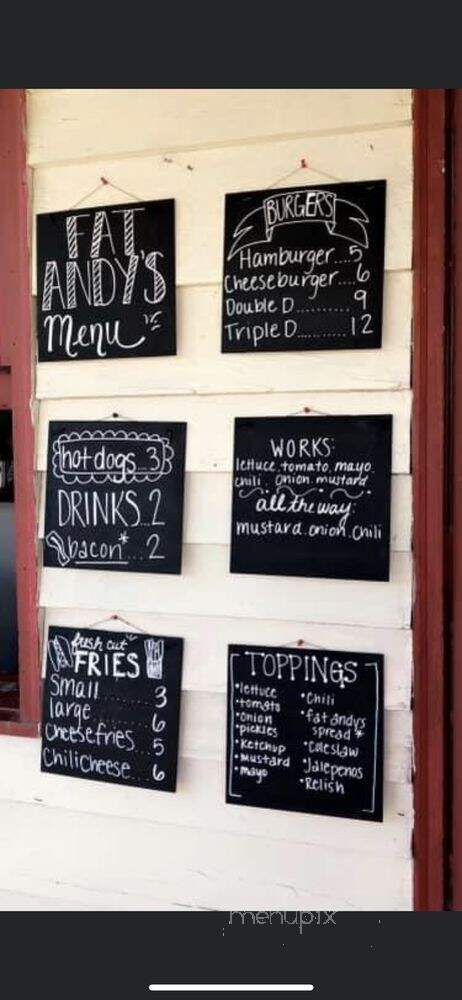 FAT
ANDY'S
Menu
BURGERS
Hamburger....5
Cheeseburger....6
Double D.........9
Triple D.........12
hot dogs..3
DRINKS...2
bacon*...2
WORKS:
lettuce.tomato.mayo.
chili.onion.mustard
all the way:
mustard.onion.chili
fresh cut
FRIES
Small.......3
large.......6
cheesefries...5
Chilicheese...6
TOPPINGS
•lettuce
•tomato
•onion
•pickles
•Ketchup
•Mustard
•mayo
•Chili
•fat andys
spread*
•Coleslaw
•Jalepenos
•Relish
menupix